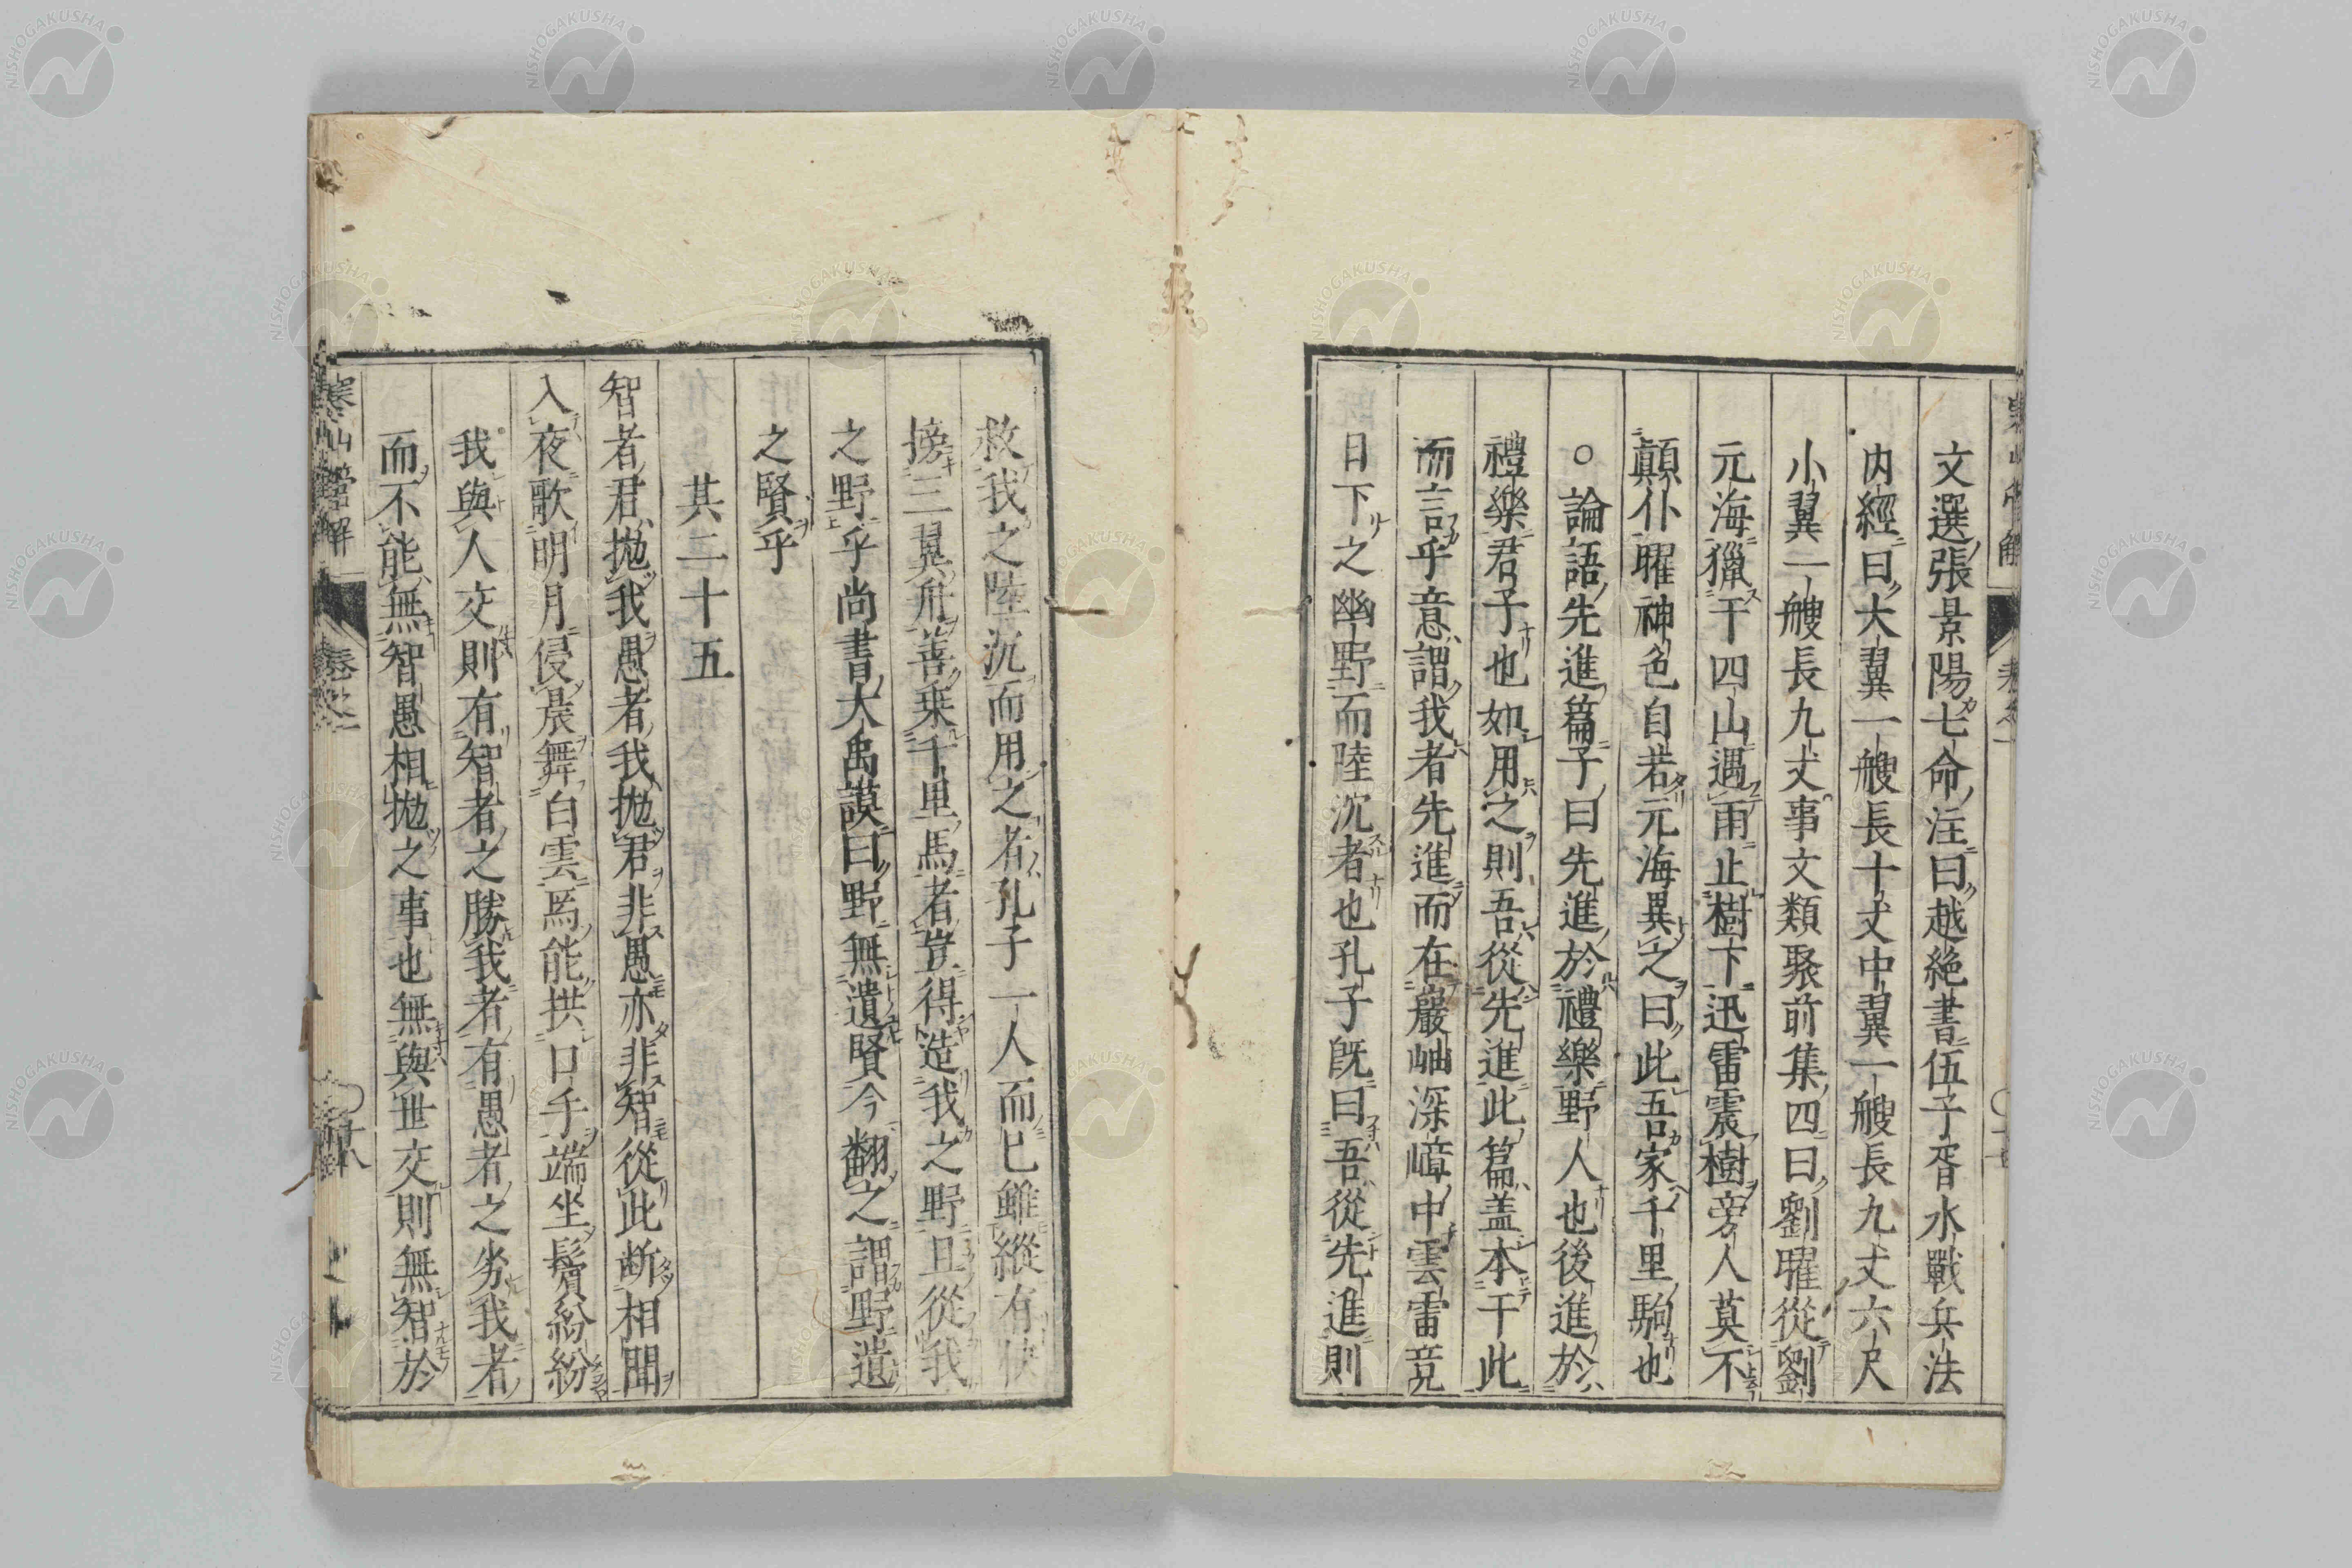 文選張景陽七命注曰越絶書伍子胥水戰兵法
内經曰大翼一艘長十丈中翼一艘長九丈六尺
小翼一艘長九丈事文類聚前集四曰劉曜從劉
元海獵于四山遇雨止樹下迅雷震樹旁人莫不
顛仆曜神色自若元海異之曰此吾家千里駒也
○論語先進篇子曰先進於禮樂野人也後進於
禮樂君子也如用之則吾從先進此篇盖本于此
而言乎意謂我者先進而在巖岫深嶂中雲雷竟
日下之幽野而陸沉者也孔子既曰吾從先進則
救我之陸沉而用之者孔子一人而已雖縱有
搒三翼舟善乗千里馬者豈得造我之野且從我
之野乎尚書大禹謨曰野無遺賢今翻之謂野遺
之賢乎
其二十五
智者君抛我愚者我抛君非愚亦非智從此断相聞
入夜歌明月侵晨舞白雲焉能拱口手端坐鬢紛紛
我與人交則有智者之勝我者有愚者之劣我者
而不能無智愚相抛之事也無與世交則無智於
寒山詩管解
卷之一
十八
NISHOGAKUSHA